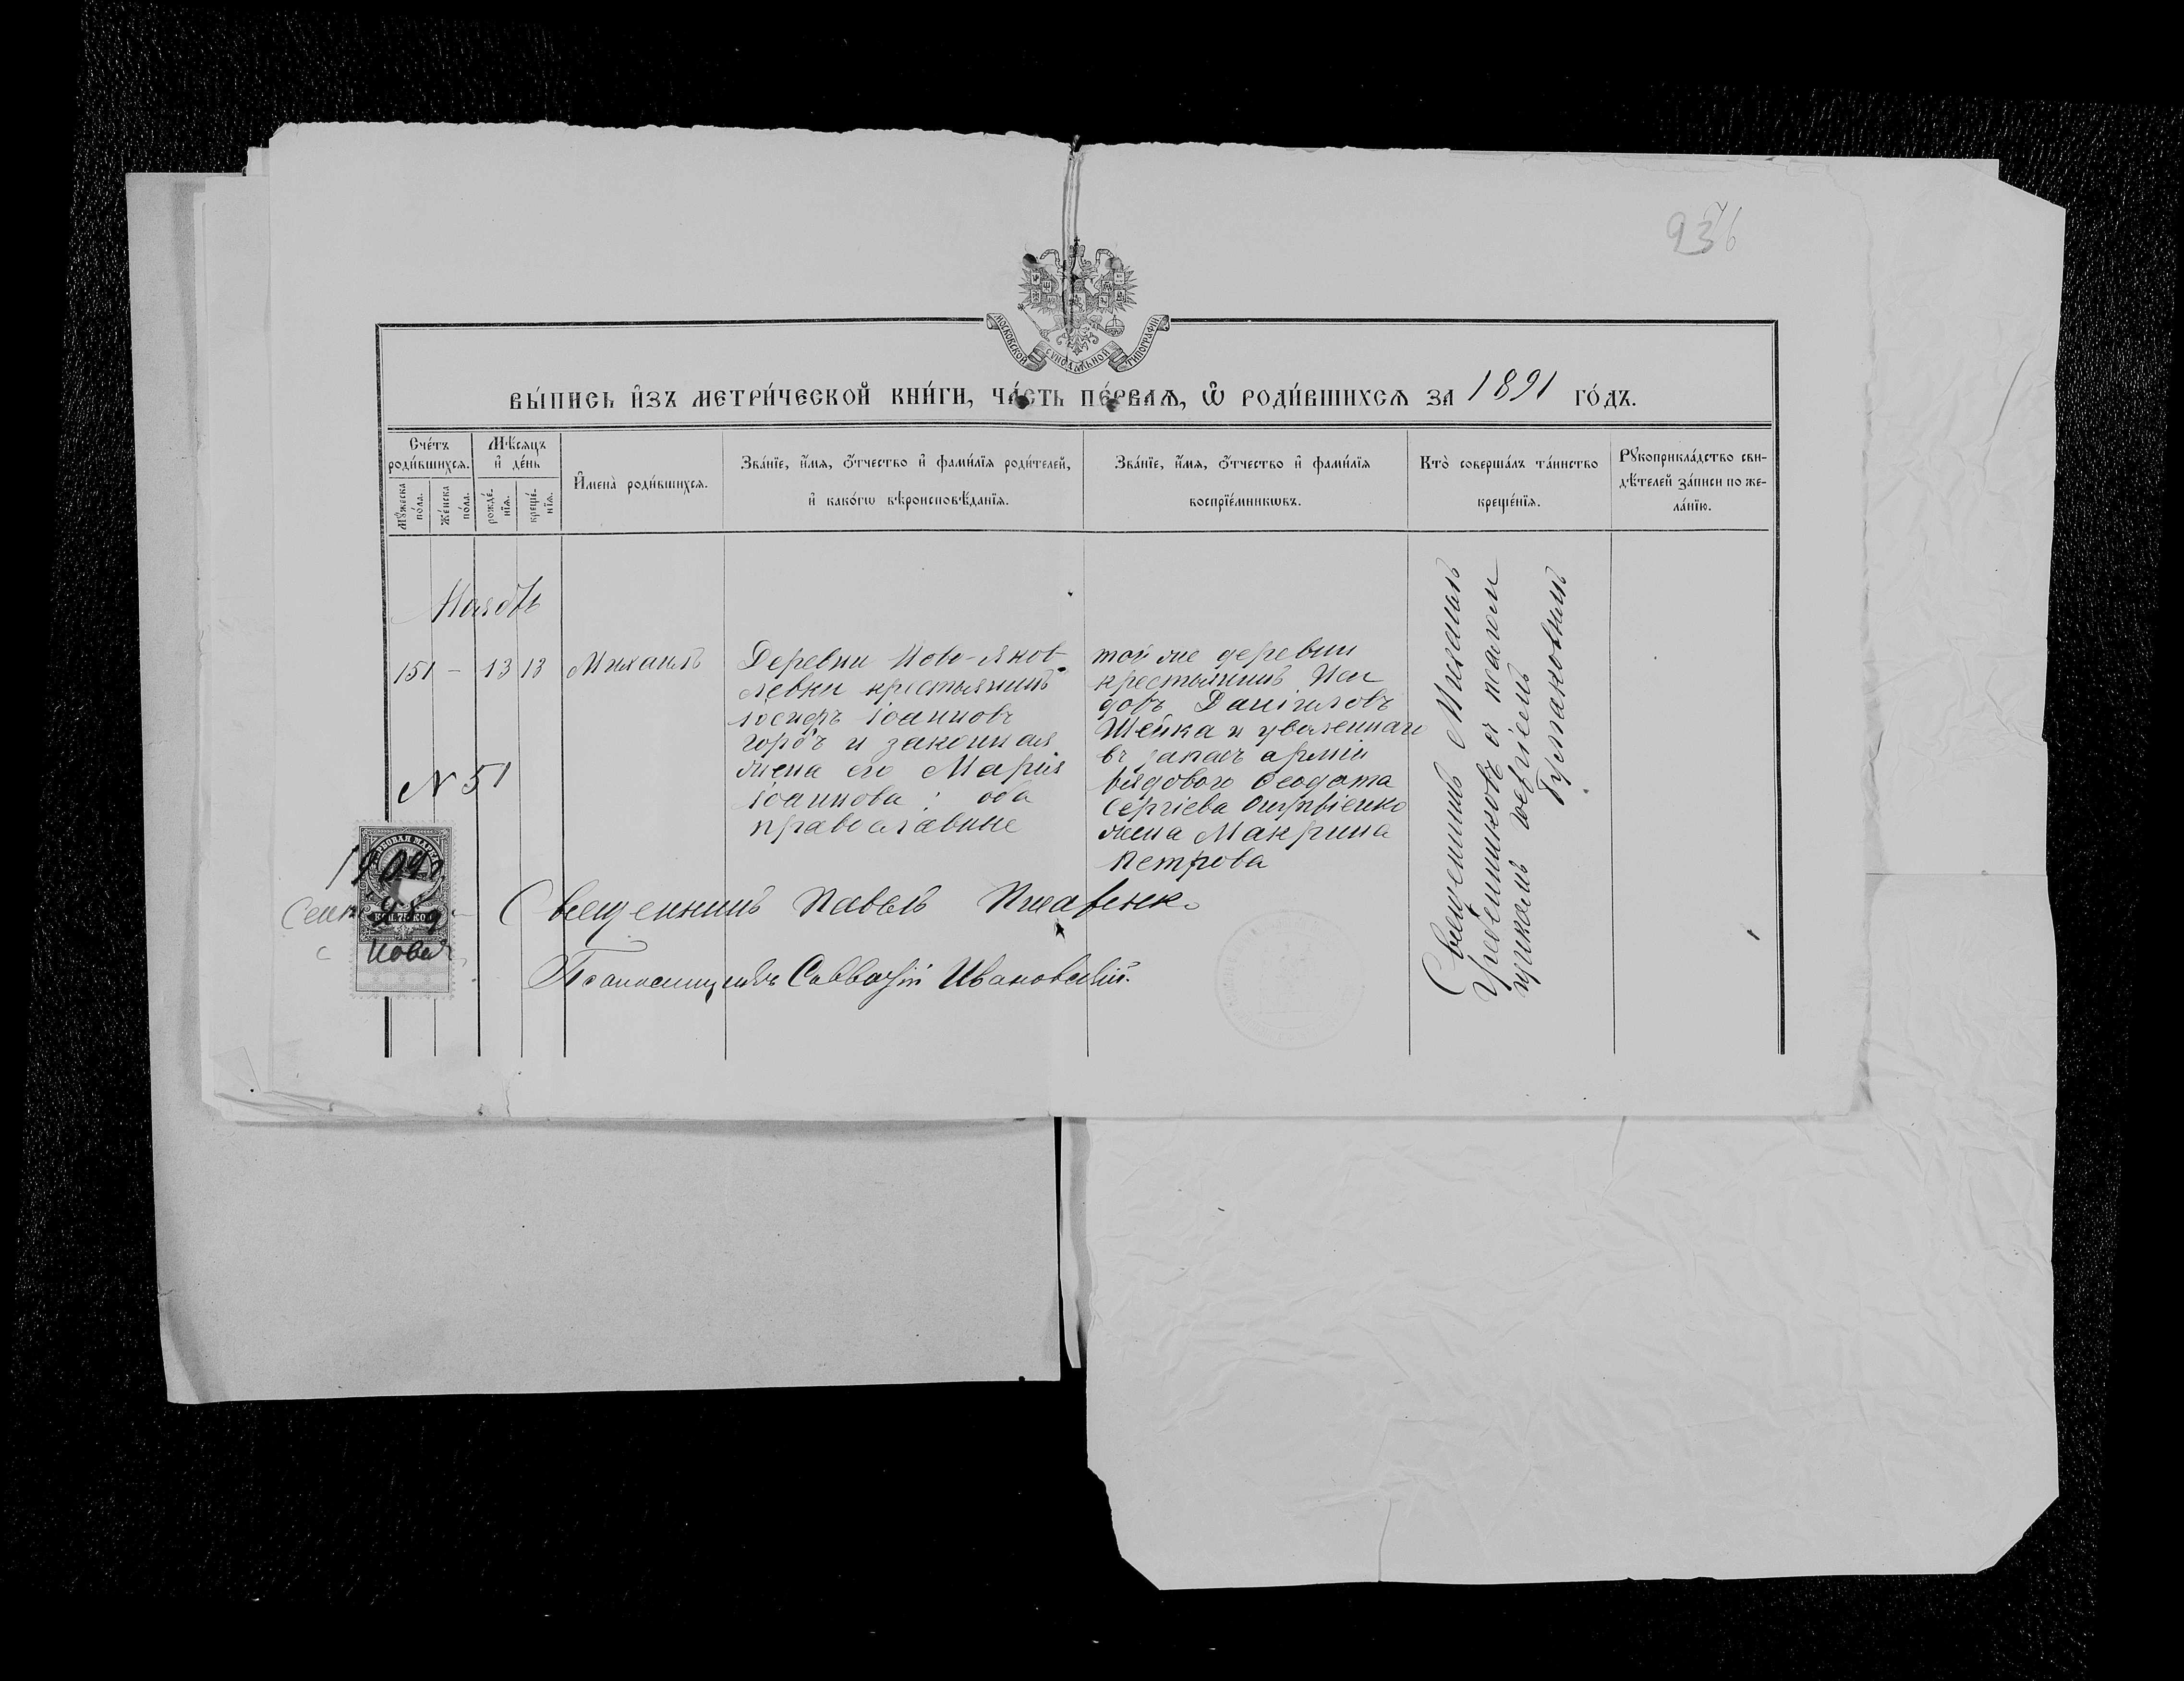 936
МОСКОВСКОЙ СѴНОДАЛЬНОЙ ТИПОГРАФІИ
ВЫ́ПИСЬ И҆ЗЪ МЕТРИ́ЧЕСКОЙ КНИ́ГИ, ЧА́СТЬ ПЕ́РВАѦ, Ѡ҆ РОДИ́ВШИХСѦ ЗА 1891 ГО́ДЪ.
Сче́тъ роди́вшихсѧ.
Мꙋ́жеска по́ла.
Же́нска по́ла.
Мѣ́сяцъ и҆ де́нь
рожде́нїѧ.
креще́нїѧ.
И҆мена̀ роди́вшихсѧ.
Зва́нїе, и҆́мѧ, ѻ҆́тчество и҆ фами́лїѧ роди́телей,
и҆ како́гѡ вѣроисповѣ́данїѧ.
Зва́нїе, и҆́мѧ, ѻ҆́тчество и҆ фами́лїѧ
воспрїе́мникѡвъ.
Кто̀ соверша́лъ та́инство
креще́нїѧ.
Рꙋкоприкла́дство сви-
дѣ́телей за́писи по же-
ла́нїю.
Ноябь
151 - 13 13 Михаилъ
Деревни Ново-Яков-
левки крестьянинъ
Іосифъ Іоанновъ
Горбъ и законная
жена его Марія
Іоаннова; оба
православные
той же деревни
крестьянинъ Иси
доръ Даніиловъ
Шейка и уволеннаго
въ запасъ арміи
рядового Ѳеодота
Сергіева Онуфріенко
жена Макрина
Петрова
Священникъ Михаилъ
Гребенниковъ съ псаломщикомъ Георгіемъ
Гусаковымъ
N 51
1909 г.
Сент
75 КОП.
Священникъ Павелъ
Псаломщикъ Савватій Ивановскій.